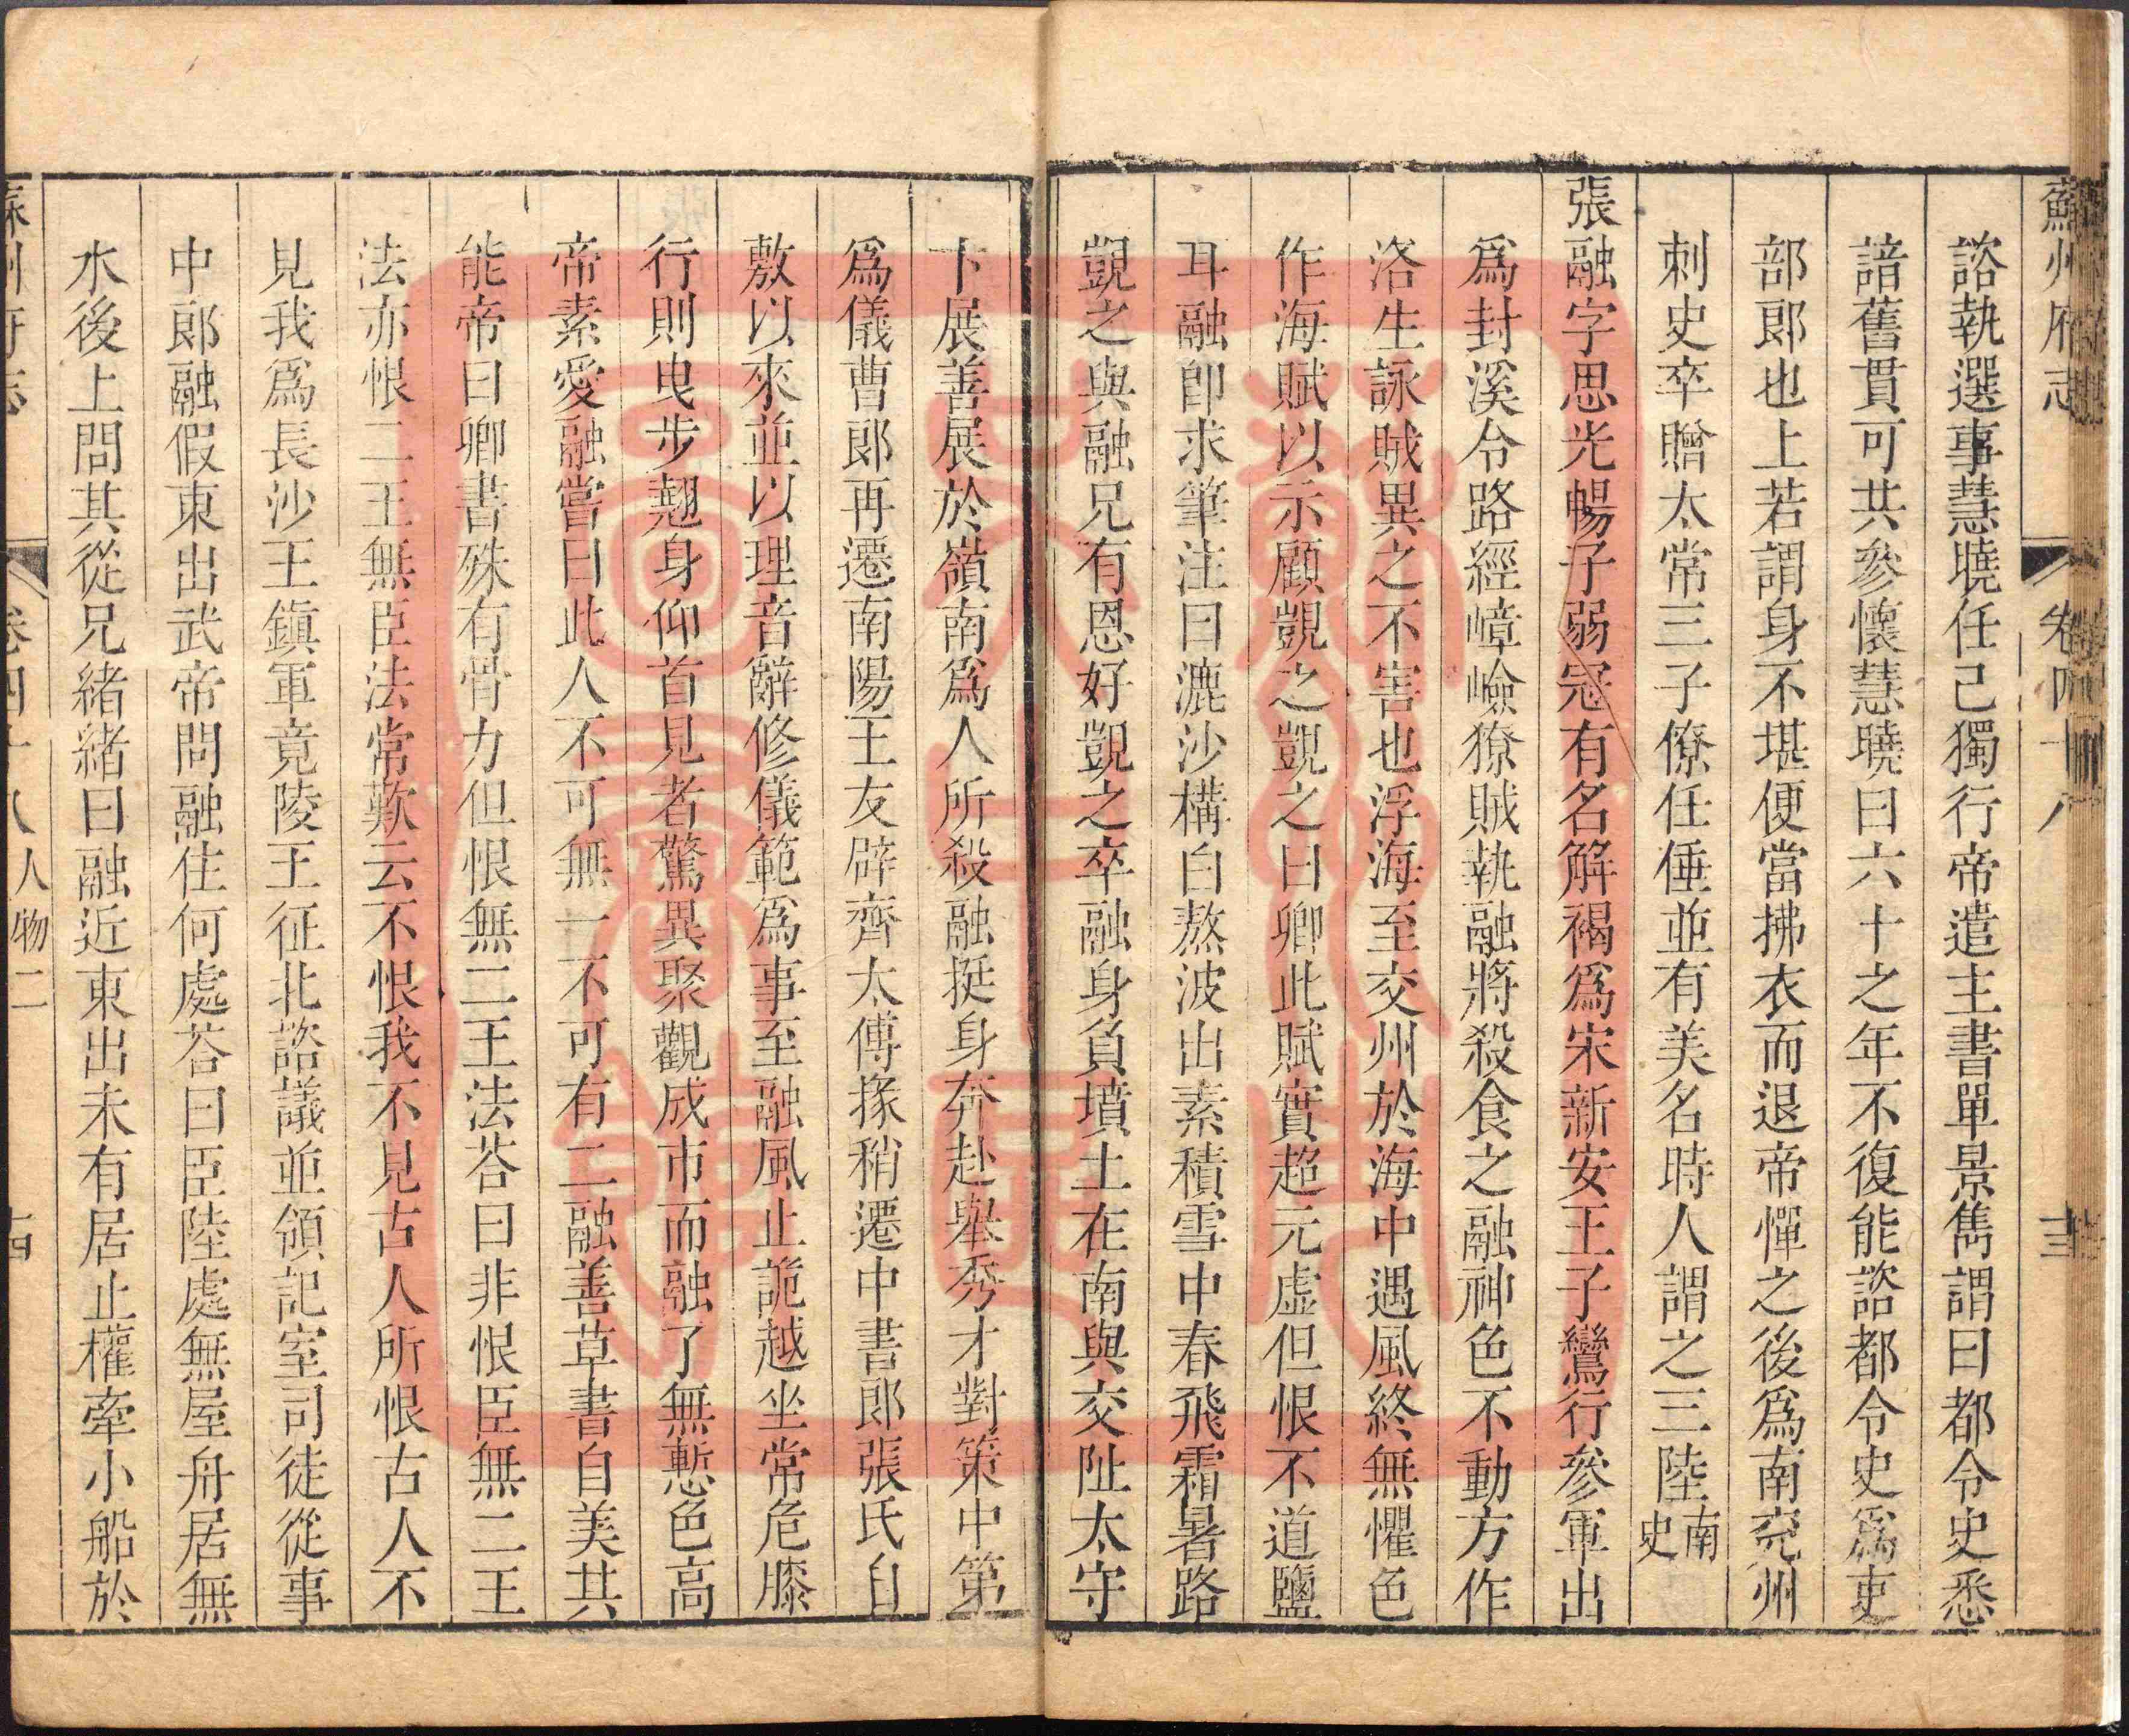 蘇州府志 卷四十八
諮執選事慧曉任己獨行帝遣主書單景雋謂曰都令史悉
諳舊貫可共參懷慧曉曰六十之年不復能諮都令史爲吏
部郎也上若謂身不堪便當拂衣而退帝憚之後爲南兖州
刺史卒贈太常三子僚任倕並有美名時人謂之三陸南史
張融字思光暢子弱冠有名解褐爲宋新安王子鸞行參軍出
爲封溪令路經嶂嶮獠賊執融將殺食之融神色不動方作
洛生詠賊異之不害也浮海至交州於海中遇風終無懼色
作海賦以示顧覬之覬之曰卿此賦實超元虛但恨不道鹽
耳融卽求筆注曰漉沙構白熬波出素積雪中春飛霜暑路
覬之與融兄有恩好覬之卒融身負墳土在南與交阯太守
卞展善展於嶺南爲人所殺融挺身奔赴舉秀才對策中第
爲儀曹郎再遷南陽王友辟齊太傅掾稍遷中書郎張氏自
敷以來並以理音辭修儀範爲事至融風止詭越坐常危膝
行則曳步翹身仰首見者驚異聚觀成市而融了無慙色高
帝素愛融嘗曰此人不可無一不可有二融善草書自美其
能帝曰卿書殊有骨力但恨無二王法荅曰非恨臣無二王
法亦恨二王無臣法常歎云不恨我不見古人所恨古人不
見我爲長沙王鎮軍竟陵王征北諮議並領記室司徒從事
中郎融假東出武帝問融住何處荅曰臣陸處無屋舟居無
水後上問其從兄緒緒曰融近東出未有居止權牽小船於
蘇州府志 卷四十八人物二 十四